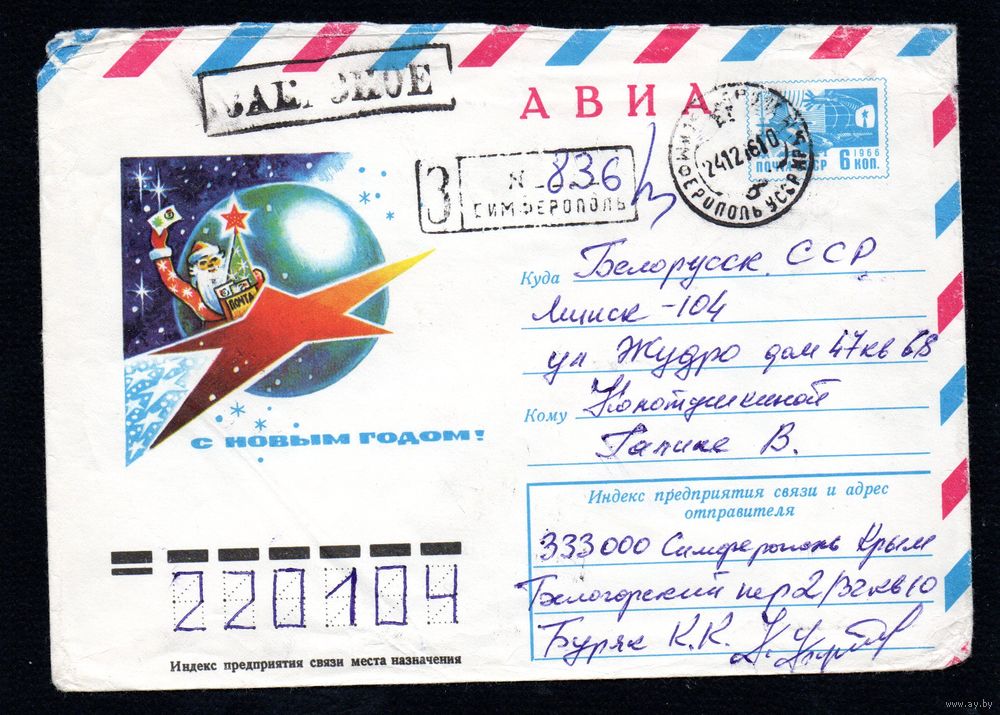 ЗАКАЗНОЕ
АВИА
1966
ПОЧТА СССР 6 КОП.
СИМФЕРОПОЛЬ УССР
24126
З
№ 836
СИМФЕРОПОЛЬ
ПОЧТА
С НОВЫМ ГОДОМ!
Куда Белорусск. ССР
Минск-104
ул Жудро дом 47 кв 68
Кому
Галине В.
Индекс предприятия связи и адрес
отправителя
333000 Симферополь Крым
Белогорский пер 2/32 кв 10
Буряк К.К.
220104
Индекс предприятия связи места назначения
www.ay.by